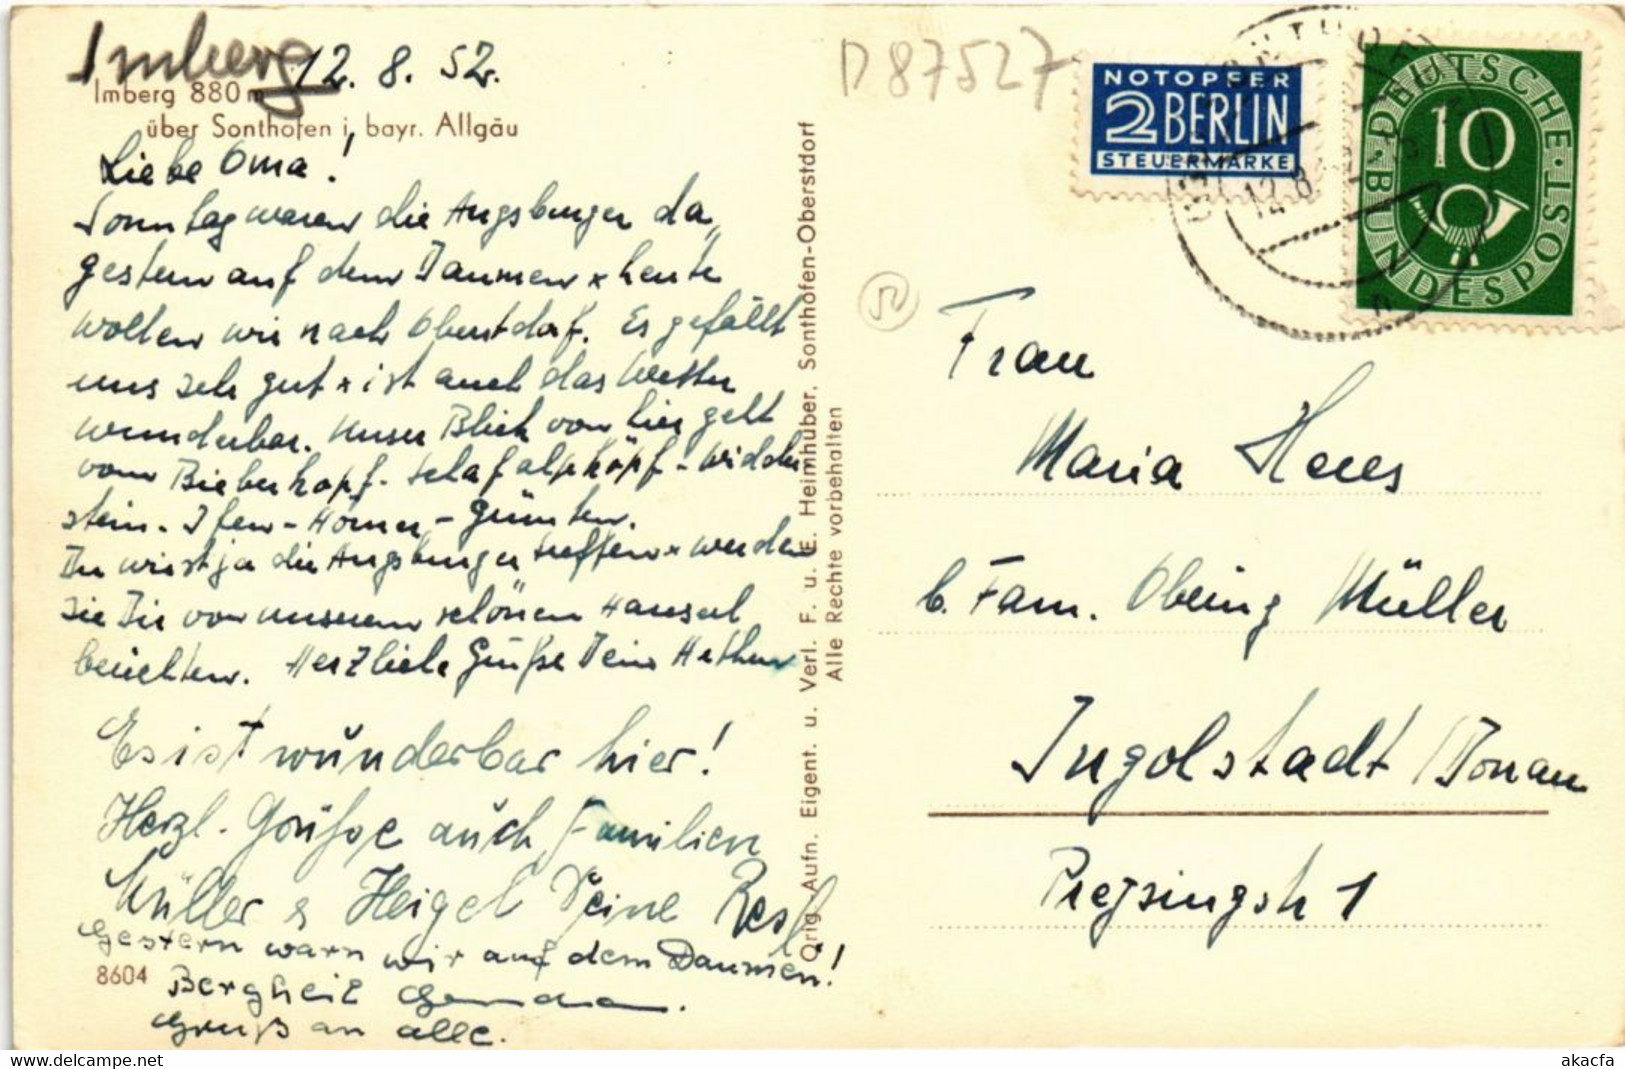 Imberg 12. 8. 52.
Imberg 880 m
über Sonthofen i. bayr. Allgäu
Liebe Oma!
Sonntag waren die Augsburger da,
gestern auf dem Daumen + heute
wollen wir nach Oberstdorf. Es gefällt
uns sehr gut + ist auch das Wetter
wunderbar. Unser Blick von hier geht
vom Bieberkopf - Schafalpköpf - Widder
stein - Ifen - Hörner - Grünten.
Du wirst ja die Augsburger treffen + werden
sie Dir von unserem schönen Hauserl
berichten. Herzliche Grüße Dein
Es ist wunderbar hier!
Herzl. Grüße auch Familien
Müller & Heigel Deine Resl
Gestern warn wir auf dem Daumen!
8604
Bergheil
Gruß an alle.
Orig. Aufn. Eigent. u. Verl. F. u. E. Heimhuber, Sonthofen-Oberstdorf
Alle Rechte vorbehalten
D 87527
52
NOTOPFER
2 BERLIN
STEUERMARKE
SONTHOFEN
12.8.
DEUTSCHE·BUNDESPOST
10
Frau
Maria
b. Fam. Obering Müller
Ingolstadt / Donau
1
akacfa